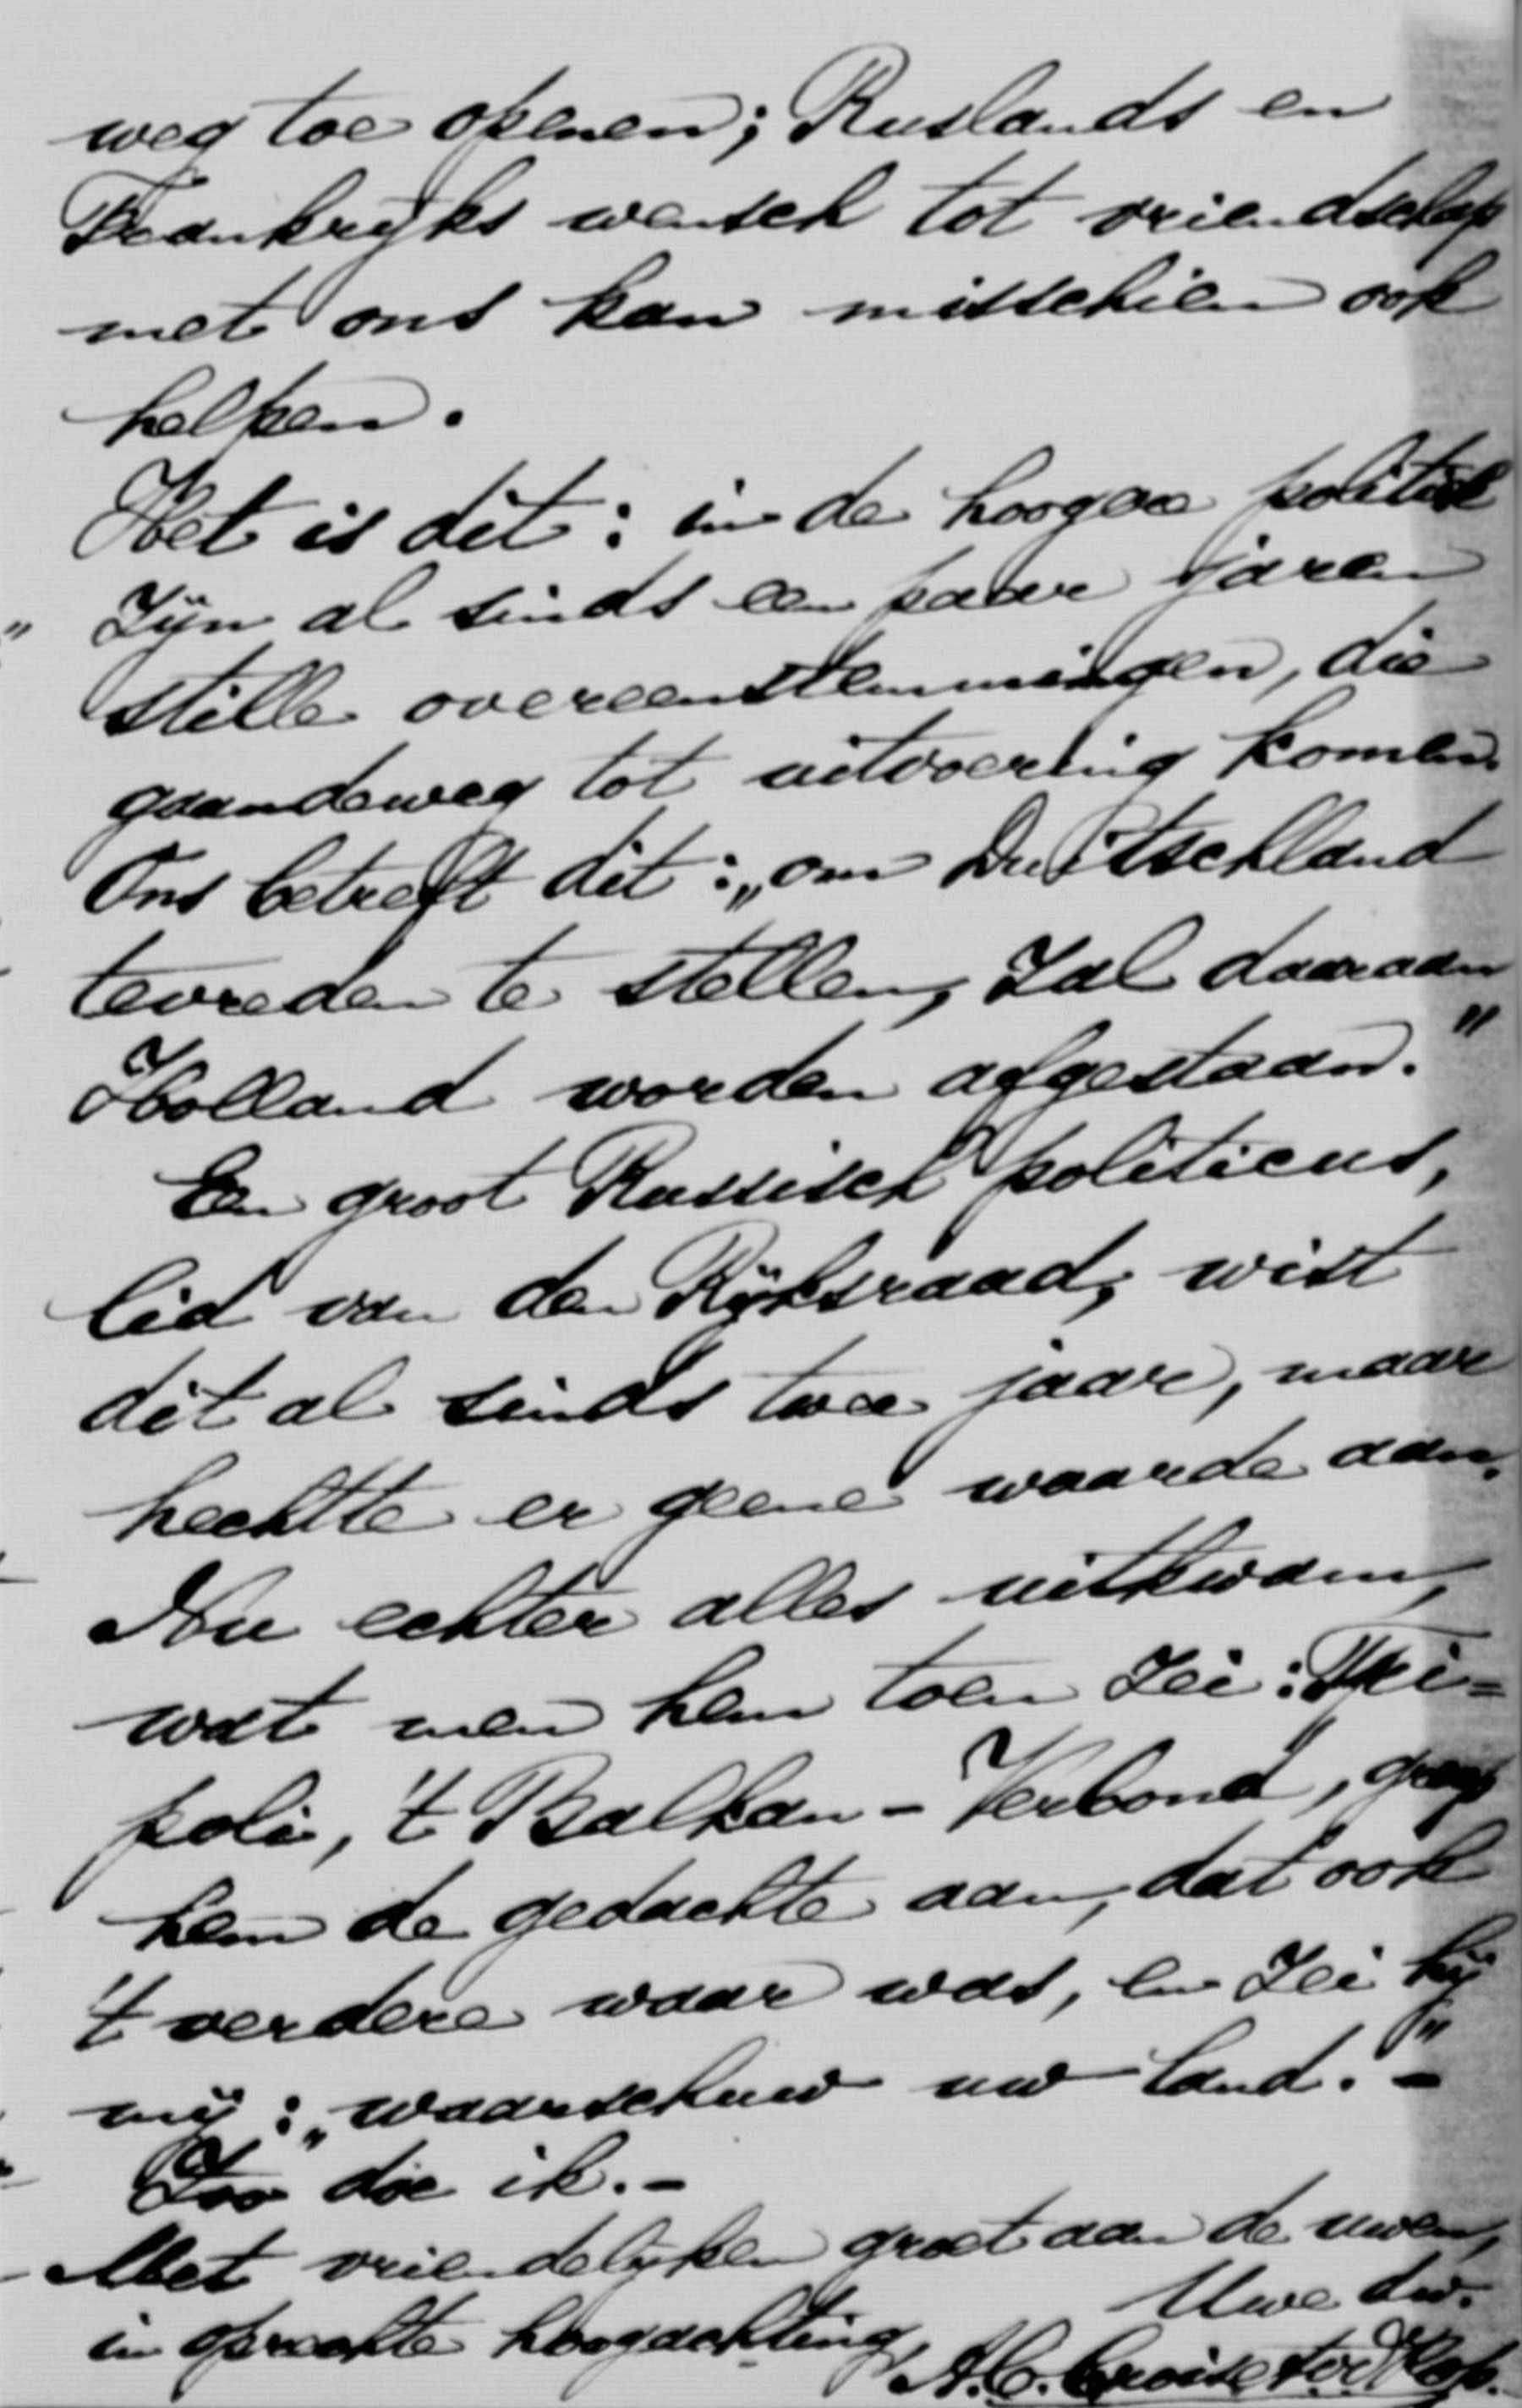 weg toe openen; Ruslands en
Frankrijks wensch tot vriendschap
met ons kan misschien ook
helpen.
Het is dit: in de hoogere politiek
zijn al sinds een paar jaren
stille overeenstemmingen, die
gaandeweg tot uitvoering komen.
Ons betreft dit: „om Duitschland
tevreden te stellen, zal daaraan
Holland worden afgestaan."
Een groot Russisch politicus,
lid van den Rijksraad, wist
dit al sinds twee jaar, maar
hechtte er geene waarde aan.
Nu echter alles uitkwam,
wat men hem toen zei: Tri=
poli, 't Balkan-Verbond, greep
hem de gedachte aan, dat ook
't verdere waar was, en zei hij
mij: „waarschuw uw land."-
Zoo doe ik.-
Met vriendelijken groet aan de uwen,
in oprechte hoogachting,
Uwe dw.
A.C. Croiset